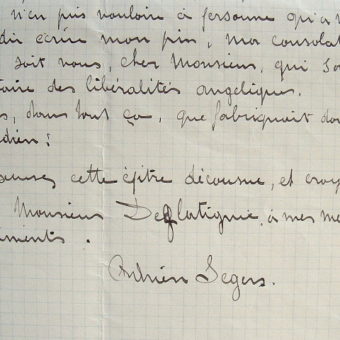 n'en puis vouloir à personne qu'à m
dû écrire mon pis, ma consolat
soit vous, cher Monsieur, qui so
taire des libéralités angéliques.
s, dans tout ça, que fabriquait don
dien!
cette épître décousue, et croy
Monsieur Deflatignie, à mes me
ments.
Adrien Segers.